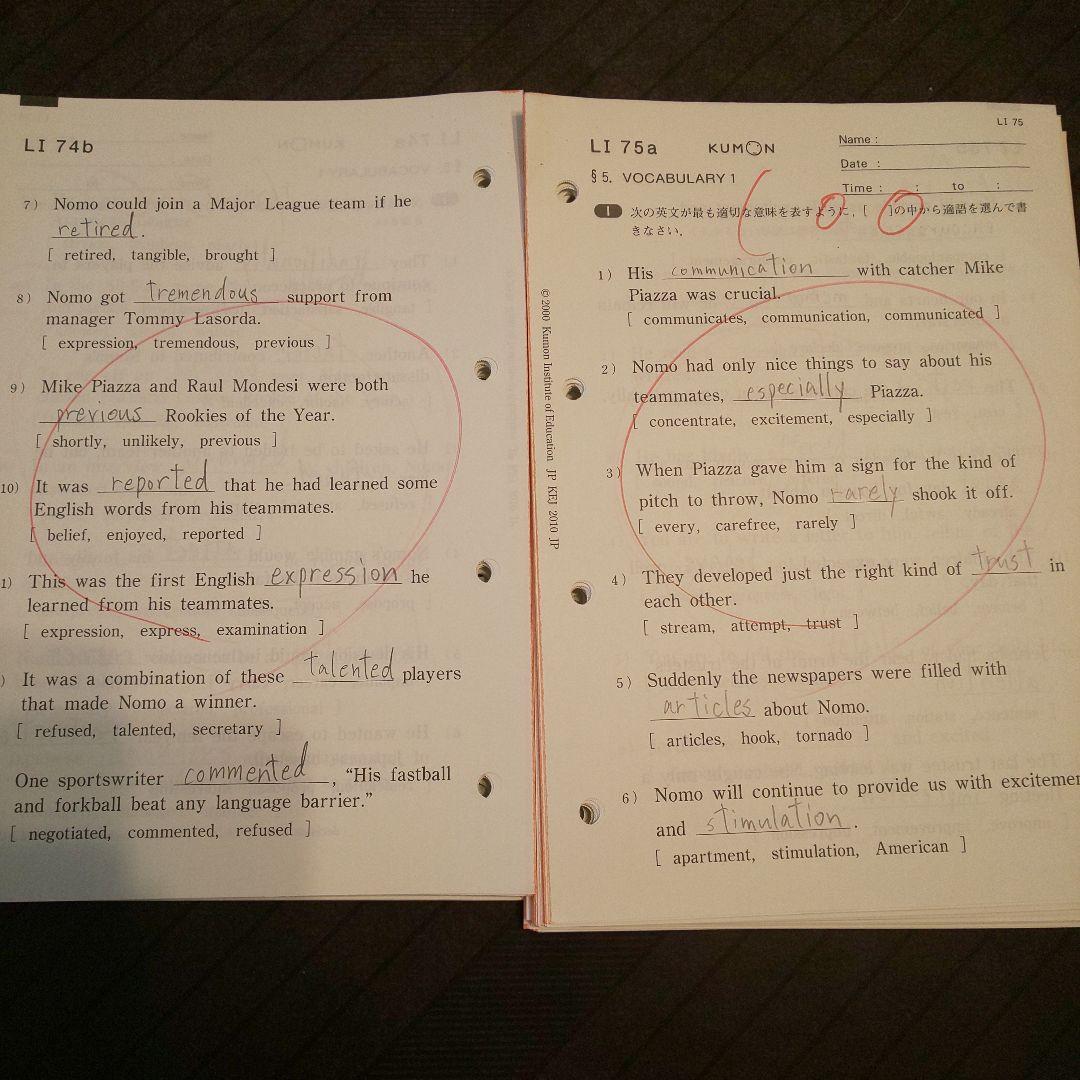 LI 74b
7) Nomo could join a Major League team if he
retired.
[ retired, tangible, brought ]
8) Nomo got tremendous support from
manager Tommy Lasorda.
[ expression, tremendous, previous ]
9) Mike Piazza and Raul Mondesi were both
previous Rookies of the Year.
[ shortly, unlikely, previous ]
10) It was reported that he had learned some
English words from his teammates.
[ belief, enjoyed, reported ]
1) This was the first English expression he
learned from his teammates.
[ expression, express, examination ]
) It was a combination of these talented players
that made Nomo a winner.
[ refused, talented, secretary ]
One sportswriter commented, “His fastball
and forkball beat any language barrier.”
[ negotiated, commented, refused ]
© 2000 Kumon Institute of Education JP KEJ 2010 JP
LI 75
LI 75a KUMON
Name :
Date :
Time : : to :
§5. VOCABULARY 1
100
1 次の英文が最も適切な意味を表すように, [ ]の中から適語を選んで書
きなさい.
1) His communication with catcher Mike
Piazza was crucial.
[ communicates, communication, communicated ]
2) Nomo had only nice things to say about his
teammates, especially Piazza.
[ concentrate, excitement, especially ]
3) When Piazza gave him a sign for the kind of
pitch to throw, Nomo rarely shook it off.
[ every, carefree, rarely ]
4) They developed just the right kind of trust in
each other.
[ stream, attempt, trust ]
5) Suddenly the newspapers were filled with
articles about Nomo.
[ articles, hook, tornado ]
6) Nomo will continue to provide us with exciteme
and stimulation.
[ apartment, stimulation, American ]